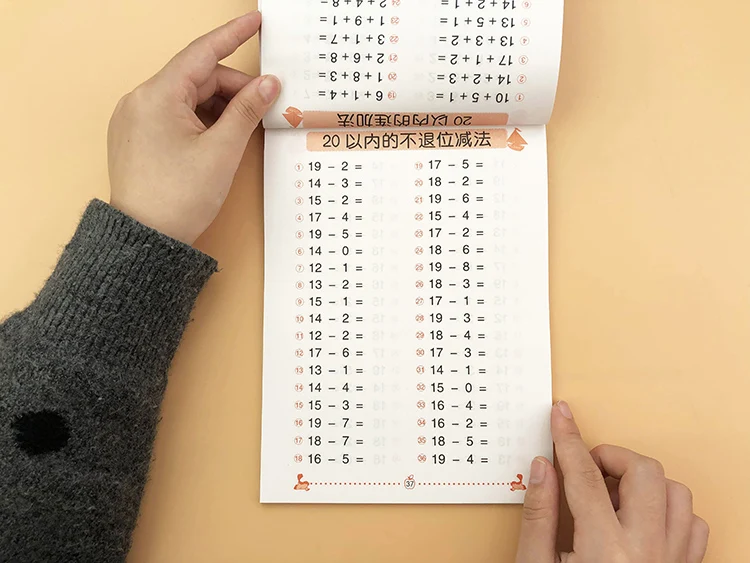 20 以内的连加法
① 10 + 5 + 1 = ⑲ 6 + 1 + 4 =
② 14 + 2 + 3 = ⑳ 1 + 8 + 3 =
③ 17 + 1 + 2 = ㉑ 2 + 6 + 8 =
④ 13 + 3 + 2 = ㉒ 3 + 1 + 7 =
⑤ 13 + 5 + 1 = ㉓ 1 + 9 + 1 =
20 以内的不退位减法
① 19 − 2 = ⑲ 17 − 5 =
② 14 − 3 = ⑳ 18 − 2 =
③ 15 − 2 = ㉑ 19 − 6 =
④ 17 − 4 = ㉒ 15 − 4 =
⑤ 19 − 5 = ㉓ 17 − 2 =
⑥ 14 − 0 = ㉔ 18 − 6 =
⑦ 12 − 1 = ㉕ 19 − 8 =
⑧ 13 − 2 = ㉖ 18 − 3 =
⑨ 15 − 1 = ㉗ 17 − 1 =
⑩ 14 − 2 = ㉘ 19 − 3 =
⑪ 12 − 2 = ㉙ 18 − 4 =
⑫ 17 − 6 = ㉚ 17 − 3 =
⑬ 13 − 1 = ㉛ 14 − 1 =
⑭ 14 − 4 = ㉜ 15 − 0 =
⑮ 15 − 3 = ㉝ 16 − 4 =
⑯ 19 − 7 = ㉞ 16 − 2 =
⑰ 18 − 7 = ㉟ 18 − 5 =
⑱ 16 − 5 = ㊱ 19 − 4 =
37